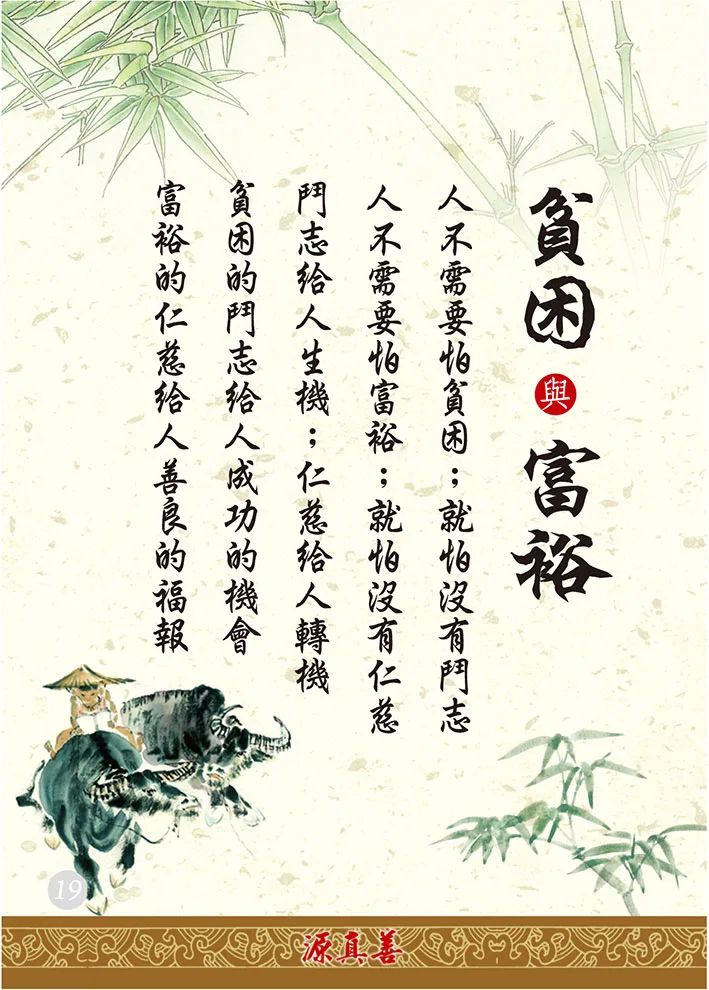 貧困與富裕
人不需要怕貧困；就怕沒有鬥志
人不需要怕富裕；就怕沒有仁慈
鬥志給人生機；仁慈給人轉機
貧困的鬥志給人成功的機會
富裕的仁慈給人善良的福報
19
源真善